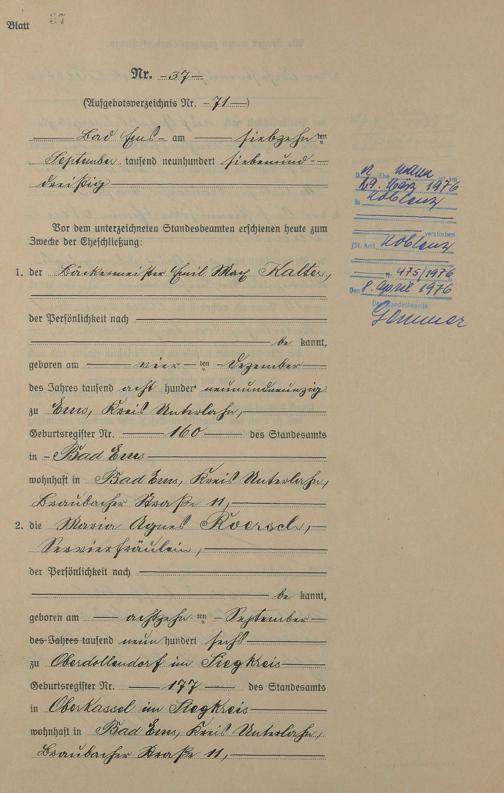 Blatt 37
Nr. 37
(Aufgebotsverzeichnis Nr. 71)
Bad Ems am siebzehn ten
September tausend neunhundert siebenund-
dreißig
Vor dem unterzeichneten Standesbeamten erschienen heute zum
Zwecke der Eheschließung:
1. der Bäckermeister Emil Max Kalter,
der Persönlichkeit nach
be kannt,
geboren am vier ten Dezember
des Jahres tausend acht hundert neunundneunzig
zu Ems, Kreis Unterlahn,
Geburtsregister Nr. 160 des Standesamts
in Bad Ems
wohnhaft in Bad Ems, Kreis Unterlahn,
Braubacher Straße 11,
2. die Maria Agnes
Servierfräulein,
der Persönlichkeit nach
be kannt,
geboren am achtzehn ten September
des Jahres tausend neun hundert sechs
zu Oberdollendorf im Siegkreis
Geburtsregister Nr. 177 des Standesamts
in Oberkassel im Siegkreis
wohnhaft in Bad Ems, Kreis Unterlahn,
Braubacher Straße 11,
Ehe mann ist am
29. März 1976
in Koblenz
verstorben
(St. Amt Koblenz
Nr. 475/1976
Den 8. April 1976
Der Standesbeamte